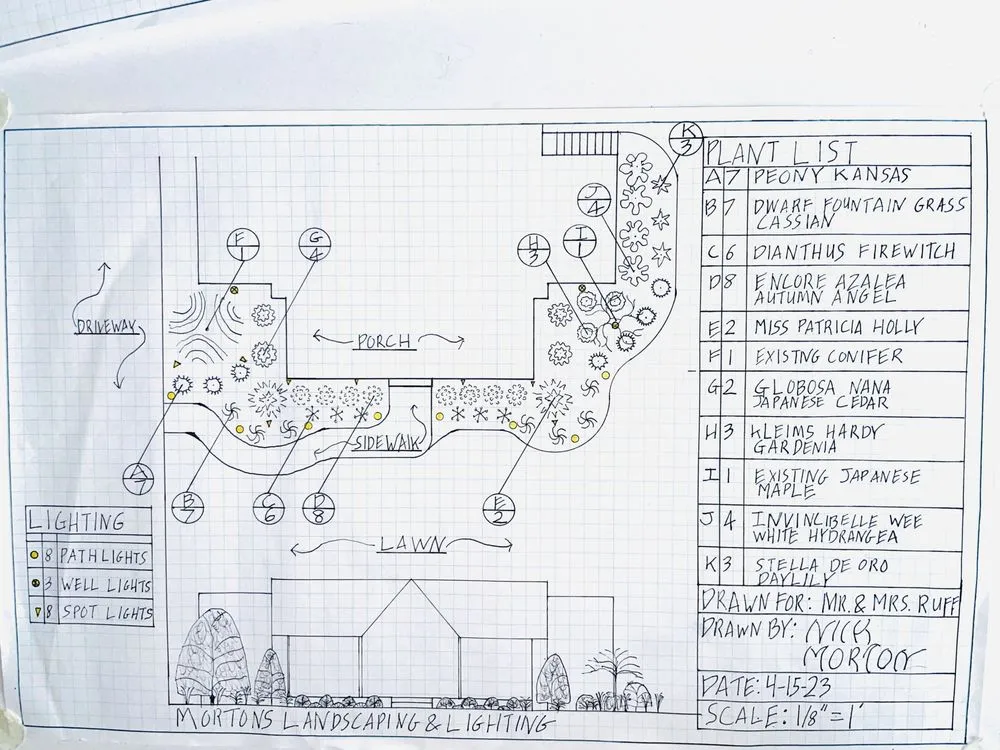 K
3
PLANT LIST
A 7 PEONY KANSAS
B 7 DWARF FOUNTAIN GRASS
CASSIAN
C 6 DIANTHUS FIREWITCH
D 8 ENCORE AZALEA
AUTUMN ANGEL
E 2 MISS PATRICIA HOLLY
F 1 EXISTNG CONIFER
G 2 GLOBOSA NANA
JAPANESE CEDAR
H 3 KLEIMS HARDY
GARDENIA
I 1 EXISTING JAPANESE
MAPLE
J 4 INVINCIBELLE WEE
WHITE HYDRANGEA
K 3 STELLA DE ORO
DAYLILY
DRAWN FOR: MR. & MRS. RUFF
DRAWN BY: NICK
MORTON
DATE: 4-15-23
SCALE: 1/8" = 1'
J
4
F
1
G
4
H
3
I
1
DRIVEWAY
PORCH
SIDEWALK
A
7
B
7
C
6
D
8
E
2
LAWN
LIGHTING
8 PATH LIGHTS
3 WELL LIGHTS
8 SPOT LIGHTS
MORTONS LANDSCAPING & LIGHTING